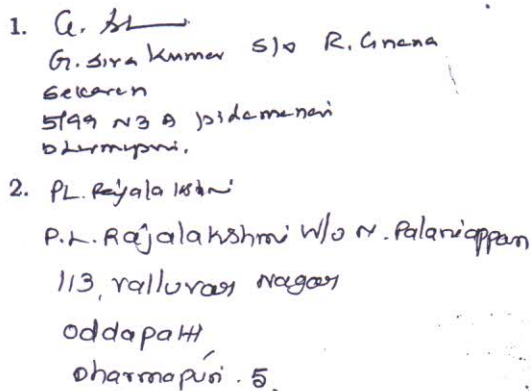 1. G. 
G. Siva Kumar S/o R. Gnana
Sekaran
5/99 N3 A Pidamaneri
Dharmapuri.
2. PL. Rajalakshmi
P.L. Rajalakshmi W/o N. Palaniappan
113, Valluvar Nagar
Oddapatti
Dharmapuri . 5.